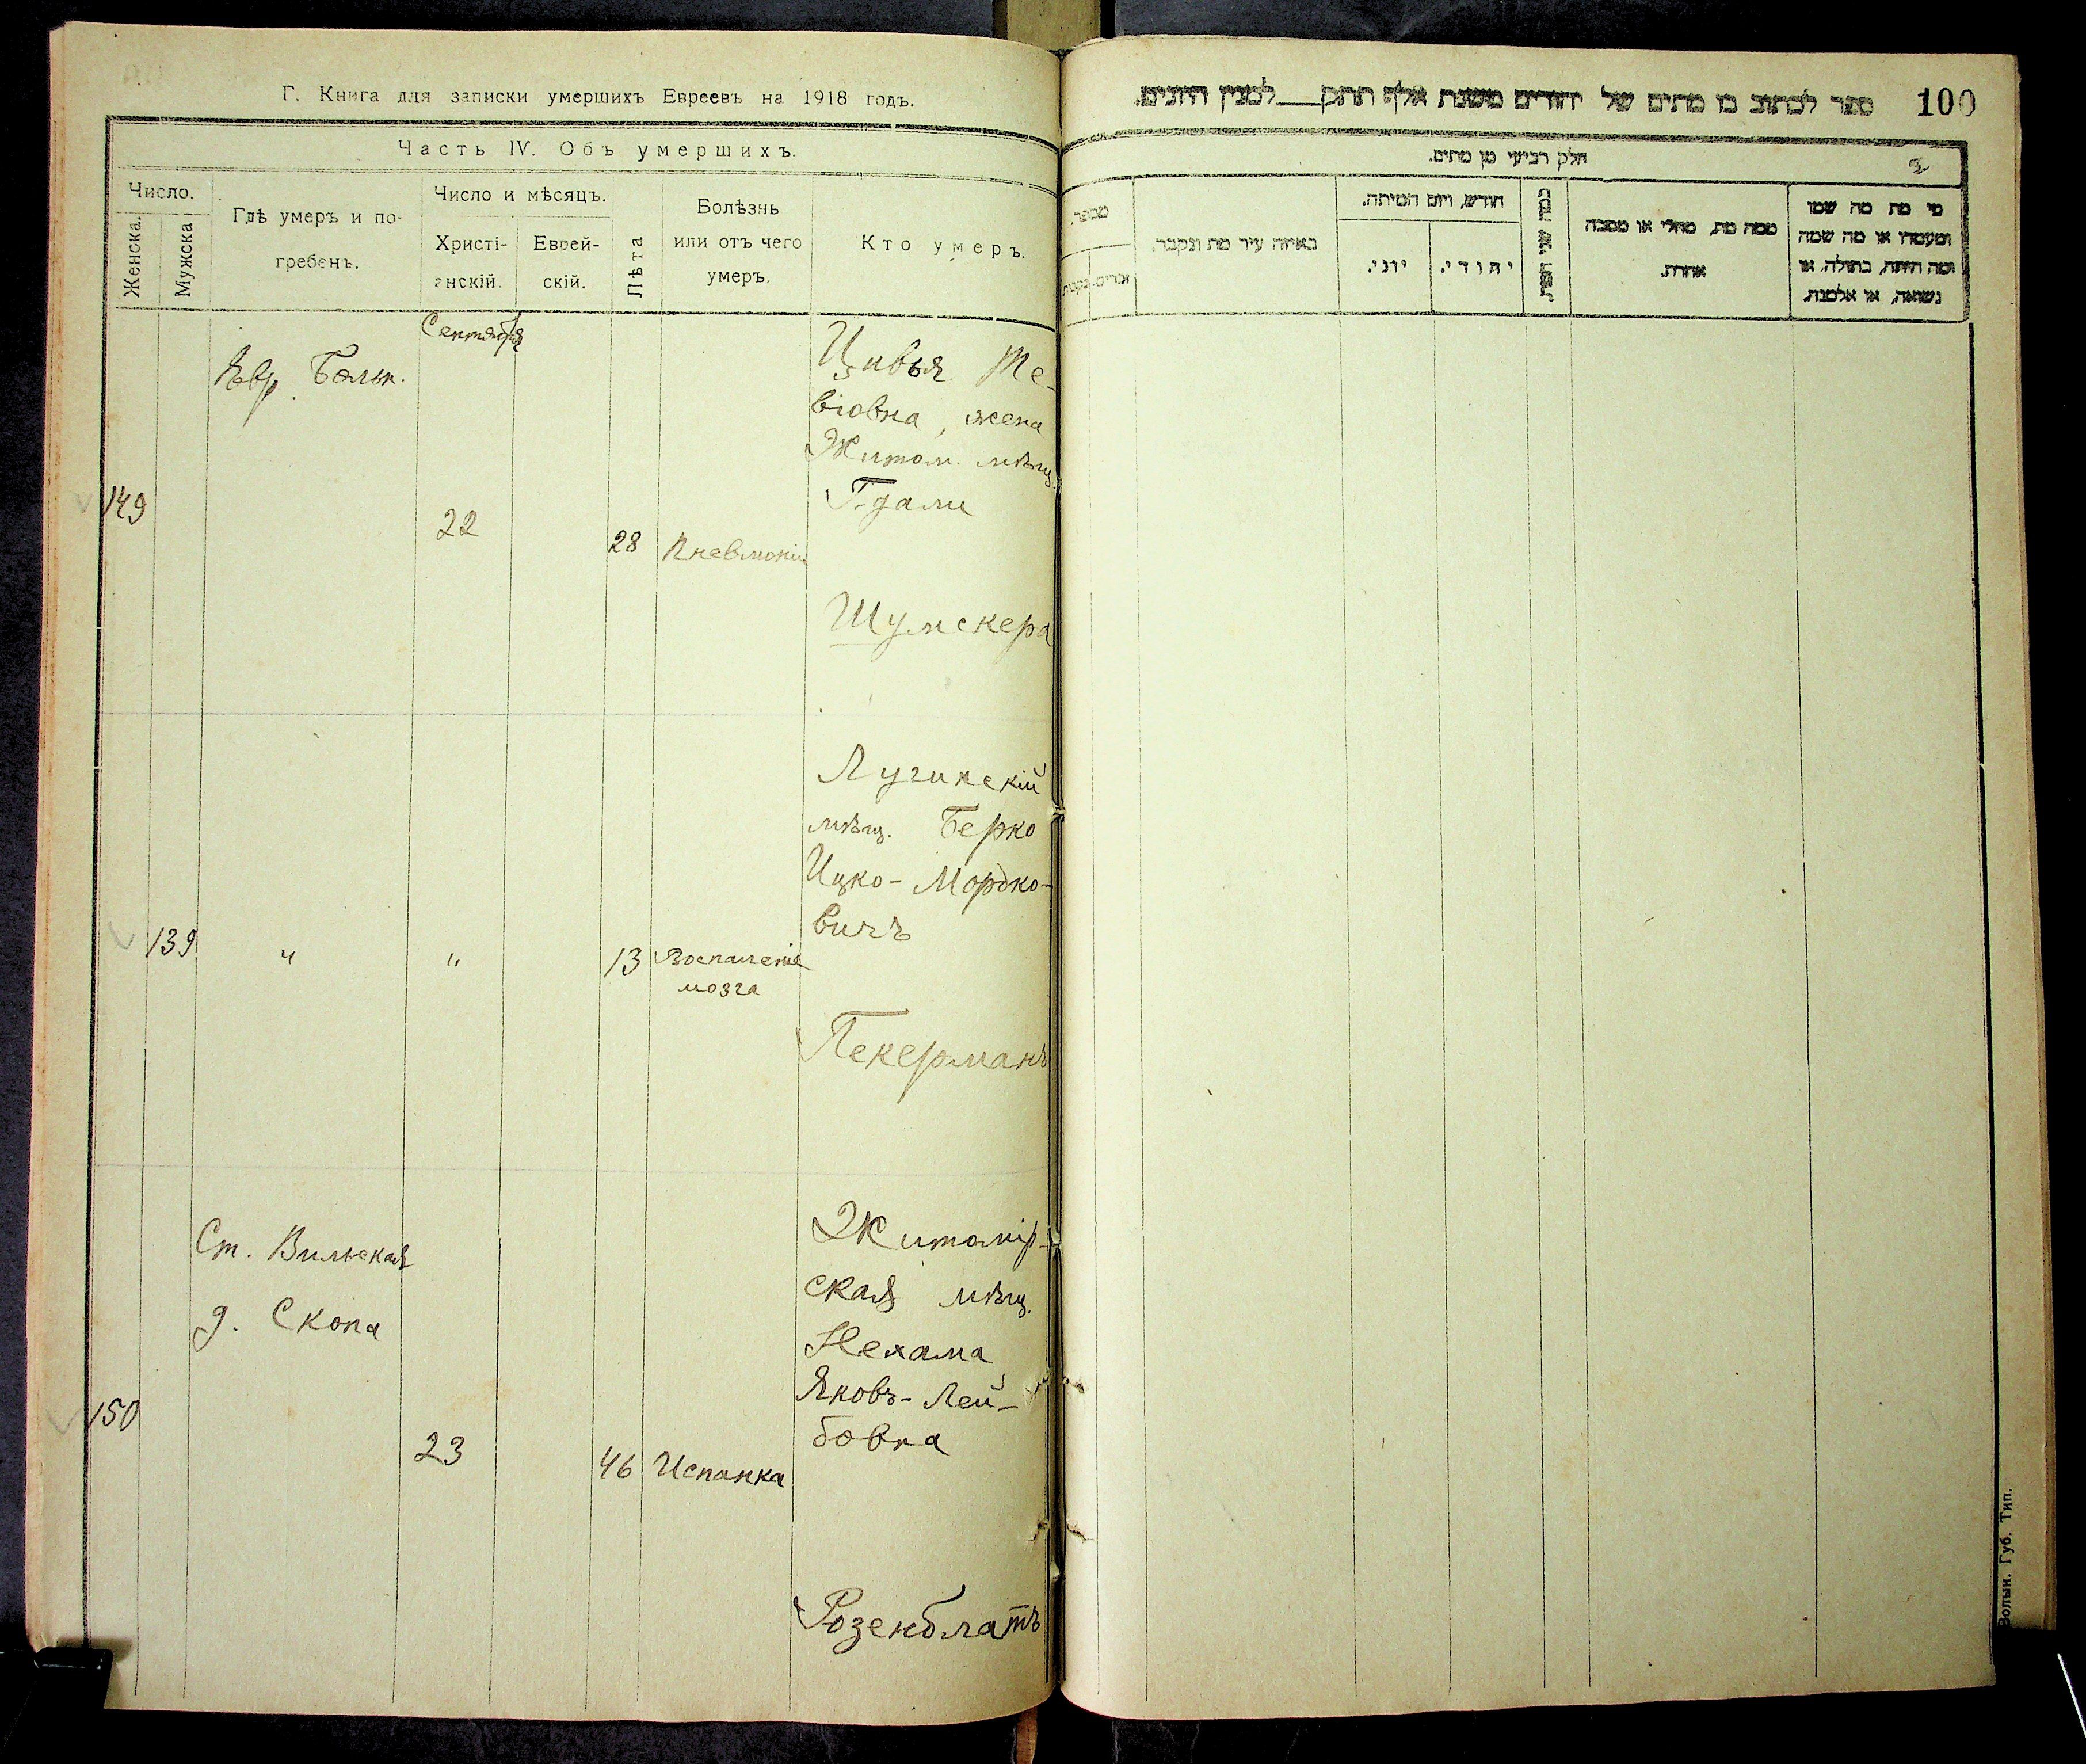 Г. Книга для записки умершихъ Евреевъ на 1918 годъ.
Часть IV. Объ умершихъ.
Число.
Женска.
Мужска
Гдѣ умеръ и по-
гребенъ.
Число и мѣсяцъ.
Христі-
анскій.
Еврей-
скій.
Лѣта
Болѣзнь
или отъ чего
умеръ.
Кто умеръ.
149
Евр. Больн.
Сентября
22
28
Пневмонія
Цивья Те-
віовна, жена
Житом. мѣщ.
Гдали
Шумскера
139
"
"
13
Воспаленіе
мозга
Лугинскій
мѣщ. Берко
Ицко-Мордко-
вичъ
Пекерманъ
150
Ст. Вильская
д. Скопа
23
46
Испанка
Житомір-
ская мѣщ.
Нехама
Яковъ-Лей-
бовна
Розенблатъ
ספר לכתוב בו מתים של יהודים משנת אלף תתק___למנין היונים.
100
חלק רביעי מן מתים.
מי מת מה שמו
ומעמדו או מה שמה
ומה היתה, בתולה, או
נשואה, או אלמנה.
ממה מת, מחלי או מסבה
אחרת.
כמה שני המת
חודש, ויום המיתה.
יהודי.
יוני.
באיזה עיר מת ונקבר.
מספר.
זכרים.
נקבות
Волын. Губ. Тип.